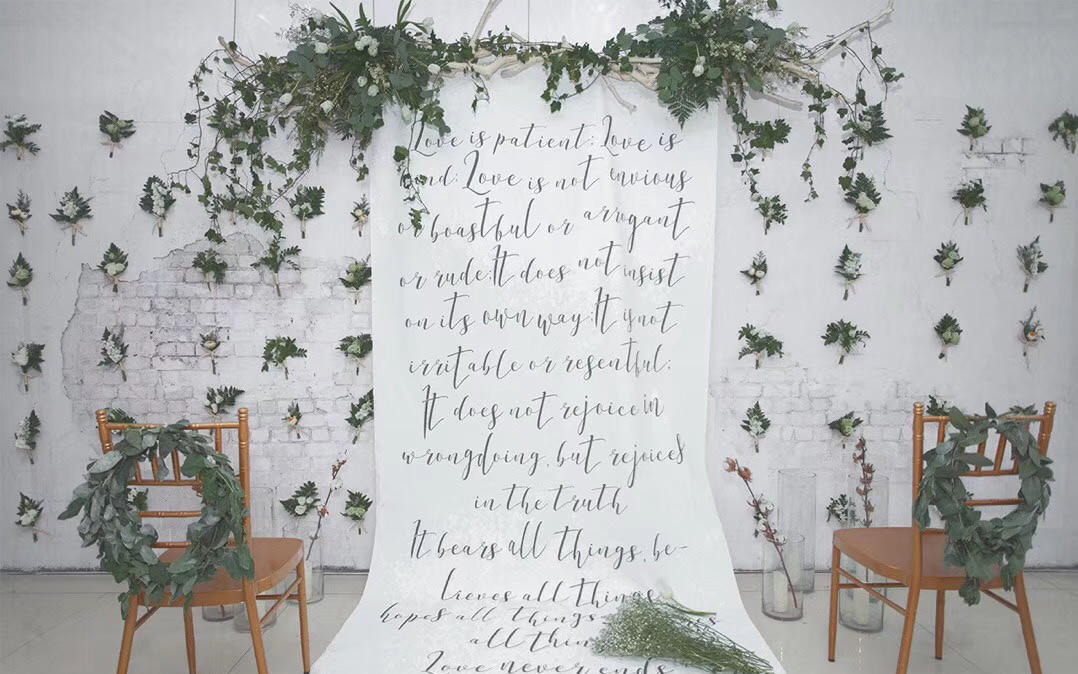 Love is patient; Love is
kind; Love is not envious
or boastful or arrogant
or rude; It does not insist
on its own way; It is not
irritable or resentful;
It does not rejoice in
wrongdoing, but rejoices
in the truth
It bears all things, be-
lieves all things,
hopes all things
all
Love never ends